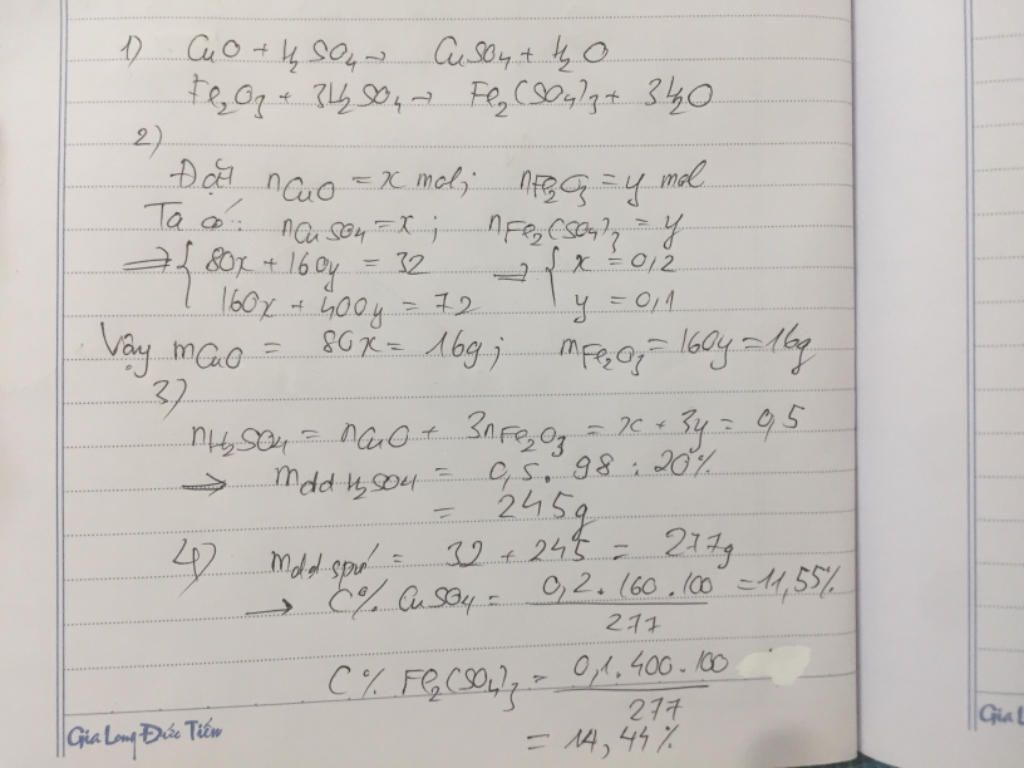 1) CuO + H₂SO₄ → CuSO₄ + H₂O
Fe₂O₃ + 3H₂SO₄ → Fe₂(SO₄)₃ + 3H₂O
2)
Đặt nCuO = x mol; nFe₂O₃ = y mol
Ta có: nCuSO₄ = x; nFe₂(SO₄)₃ = y
⇒ { 80x + 160y = 32 ⇒ { x = 0,2
160x + 400y = 72 y = 0,1
Vậy mCuO = 80x = 16g; mFe₂O₃ = 160y = 16g
3)
nH₂SO₄ = nCuO + 3nFe₂O₃ = x + 3y = 0,5
→ mdd H₂SO₄ = 0,5 . 98 : 20%
= 245g
4) mdd spứ = 32 + 245 = 277g
→ C% CuSO₄ = 0,2 . 160 . 100 / 277 = 11,55%
C% Fe₂(SO₄)₃ = 0,1 . 400 . 100 / 277
= 14,44%
Gia Long Đức Tiến
Gia L